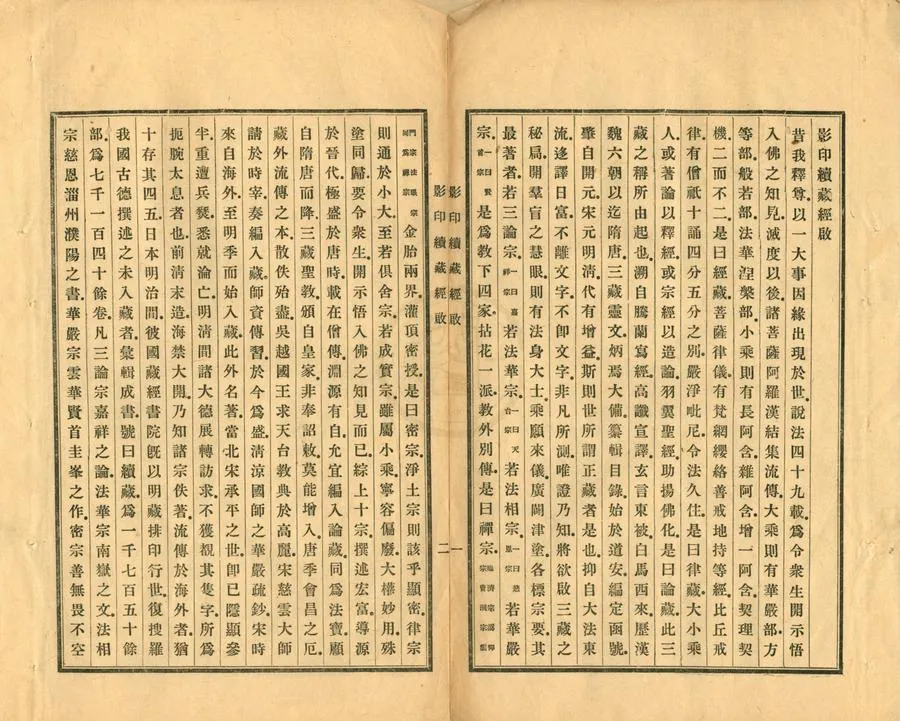 影印續藏經啟
昔我釋尊以一大事因緣出現於世說法四十九載爲令衆生開示悟
入佛之知見滅度以後諸菩薩阿羅漢結集流傳大乘則有華嚴部方
等部般若部法華涅槃部小乘則有長阿含雜阿含增一阿含契理契
機二而不二是曰經藏菩薩律儀有梵網纓絡善戒地持等經比丘戒
律有僧祇十誦四分五分之別嚴淨毗尼令法久住是曰律藏大小乘
人或著論以釋經或宗經以造論羽翼聖經助揚佛化是曰論藏此三
藏之稱所由起也溯自騰蘭寫經高讖宣譯玄言東被白馬西來歷漢
魏六朝以迄隋唐三藏靈文炳焉大備纂輯目錄始於道安編定函號
肇自開元宋元明清代有增益斯則世所謂正藏者是也抑自大法東
流迻譯日富不離文字不卽文字非凡所測唯證乃知將欲啟三藏之
秘扃開羣盲之慧眼則有法身大士乘願來儀廣闢津塗各標宗要其
最著者若三論宗一曰嘉祥宗若法華宗一曰天台宗若法相宗一曰慈恩宗若華嚴
宗一曰賢首宗是爲教下四家拈花一派教外別傳是曰禪宗臨濟宗潙仰宗曹洞宗雲
影印續藏經啟
一
影印續藏經啟
二
門宗法眼宗同爲禪宗金胎兩界灌頂密授是曰密宗淨土宗則該乎顯密律宗
則通於小大至若俱舍宗若成實宗雖屬小乘寧容偏廢大權妙用殊
塗同歸要令衆生開示悟入佛之知見而已綜上十宗撰述宏富導源
於晉代極盛於唐時載在僧傳淵源有自允宜編入論藏同爲法寶顧
自隋唐而降三藏聖教頒自皇家非奉詔敕莫能增入唐季會昌之厄
藏外流傳之本散佚殆盡吳越國王求天台教典於高麗宋慈雲大師
請於時宰奏編入藏師資傳習於今爲盛清涼國師之華嚴疏鈔宋時
來自海外至明季而始入藏此外名著當北宋承平之世卽已隱顯參
半重遭兵燹悉就淪亡明清間諸大德展轉訪求不獲覩其隻字所爲
扼腕太息者也前清末造海禁大開乃知諸宗佚著流傳於海外者猶
十存其四五日本明治間彼國藏經書院旣以明藏排印行世復搜羅
我國古德撰述之未入藏者彙輯成書號曰續藏爲一千七百五十餘
部爲七千一百四十餘卷凡三論宗嘉祥之論法華宗南嶽之文法相
宗慈恩淄州濮陽之書華嚴宗雲華賢首圭峯之作密宗善無畏不空